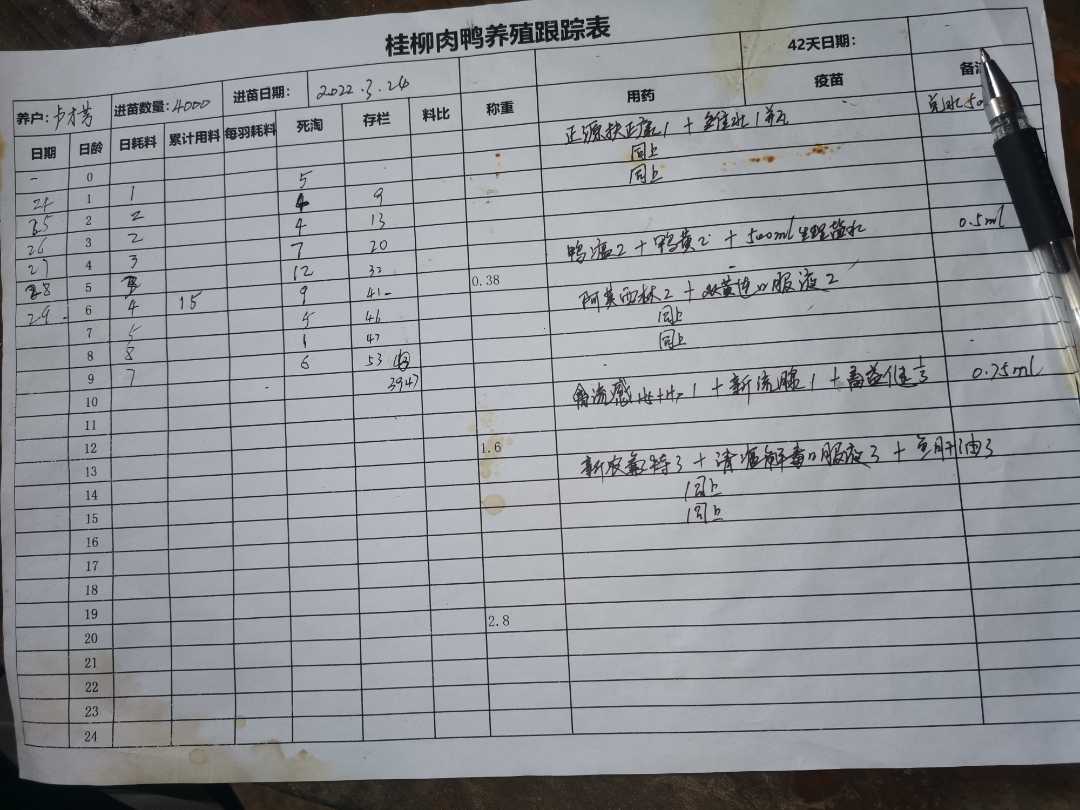 桂柳肉鸭养殖跟踪表
42天日期：
养户： 进苗数量：4000 进苗日期： 2022.3.24
用药 疫苗
日期 日龄 日耗料 累计用料 每羽耗料 死淘 存栏 料比 称重 备注
正源扶正 1 + 1
- 0 5
同上
24 1 1 4 9
同上
25 2 2 4 13
26 3 2 7 20
27 4 3 12 32
鸭瘟2 + 鸭黄2 + 500ml生理盐水 0.5ml
28 5 9 41 0.38
29 6 4 15 5 46
阿莫西林2 + 双黄连口服液2
7 5 1 47
同上
8 8 6 53
同上
9 7 3947
10
禽流感 H5+H7 1 + 新流腺1 + 0.75ml
11
12 1.6
13
新 3 + 清瘟解毒口服液3 + 鱼肝油3
14
同上
15
同上
16
17
18
19 2.8
20
21
22
23
24